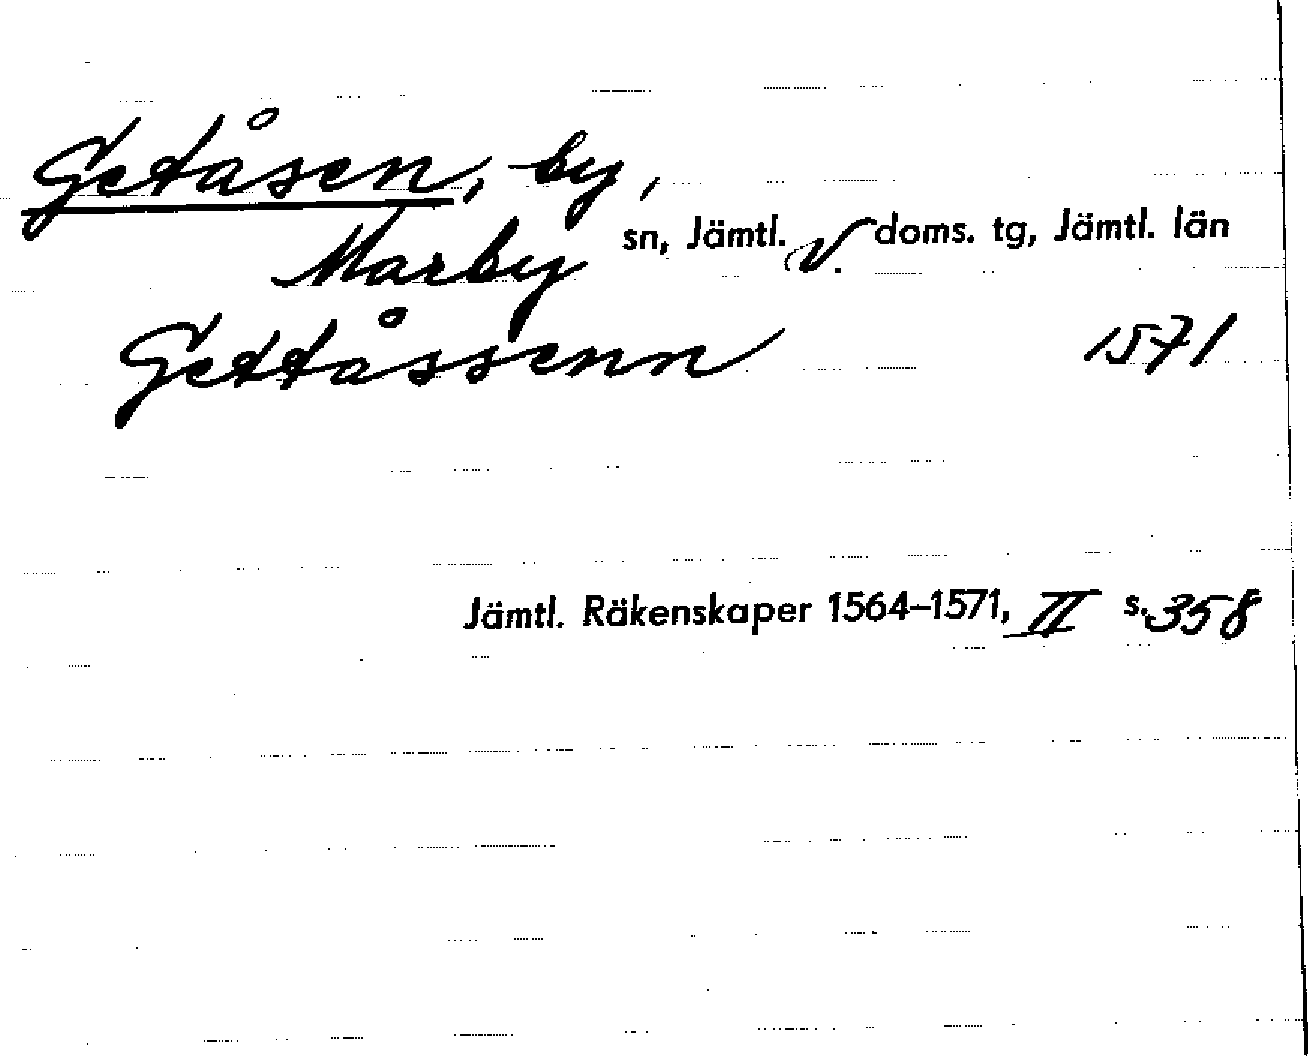 Getåsen, by,
Marby sn, Jämtl. V. doms. tg, Jämtl. län
Gettåssenn 1571
Jämtl. Räkenskaper 1564–1571, II s. 358